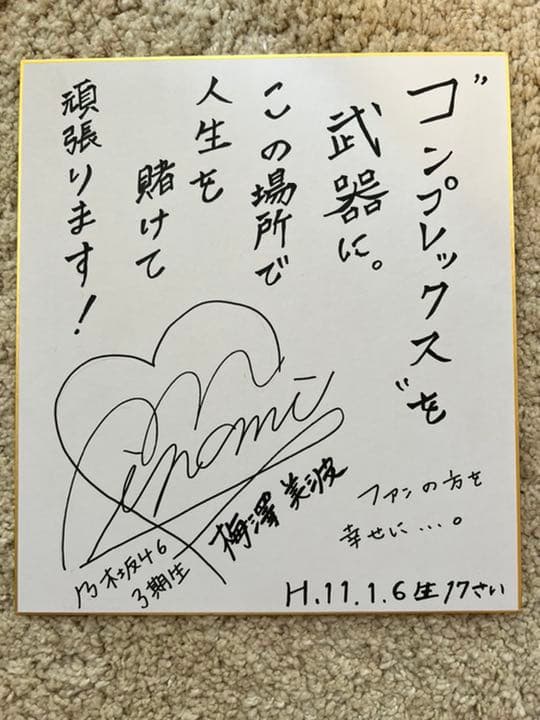 “コンプレックス”を
武器に。
この場所で
人生を
賭けて
頑張ります!
Minami
ファンの方を
幸せに…。
梅澤 美波
乃木坂46
3期生
H.11.1.6生 17さい